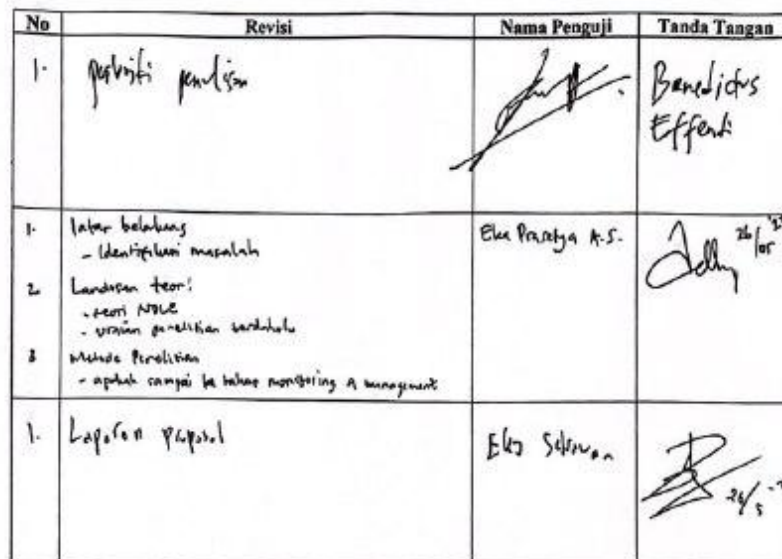 No Revisi Nama Penguji Tanda Tangan
1. perbaiki penulisan Benedictus
Effendi
1. latar belakang Eka Prasetya A.S. 26/05
- Identifikasi masalah
2. Landasan teori
- teori NDLC
- uraian penelitian terdahulu
3 Metode Penelitian
- apakah sampai ke tahap monitoring & management
1. Laporan proposal Eky Setiawan
26/5